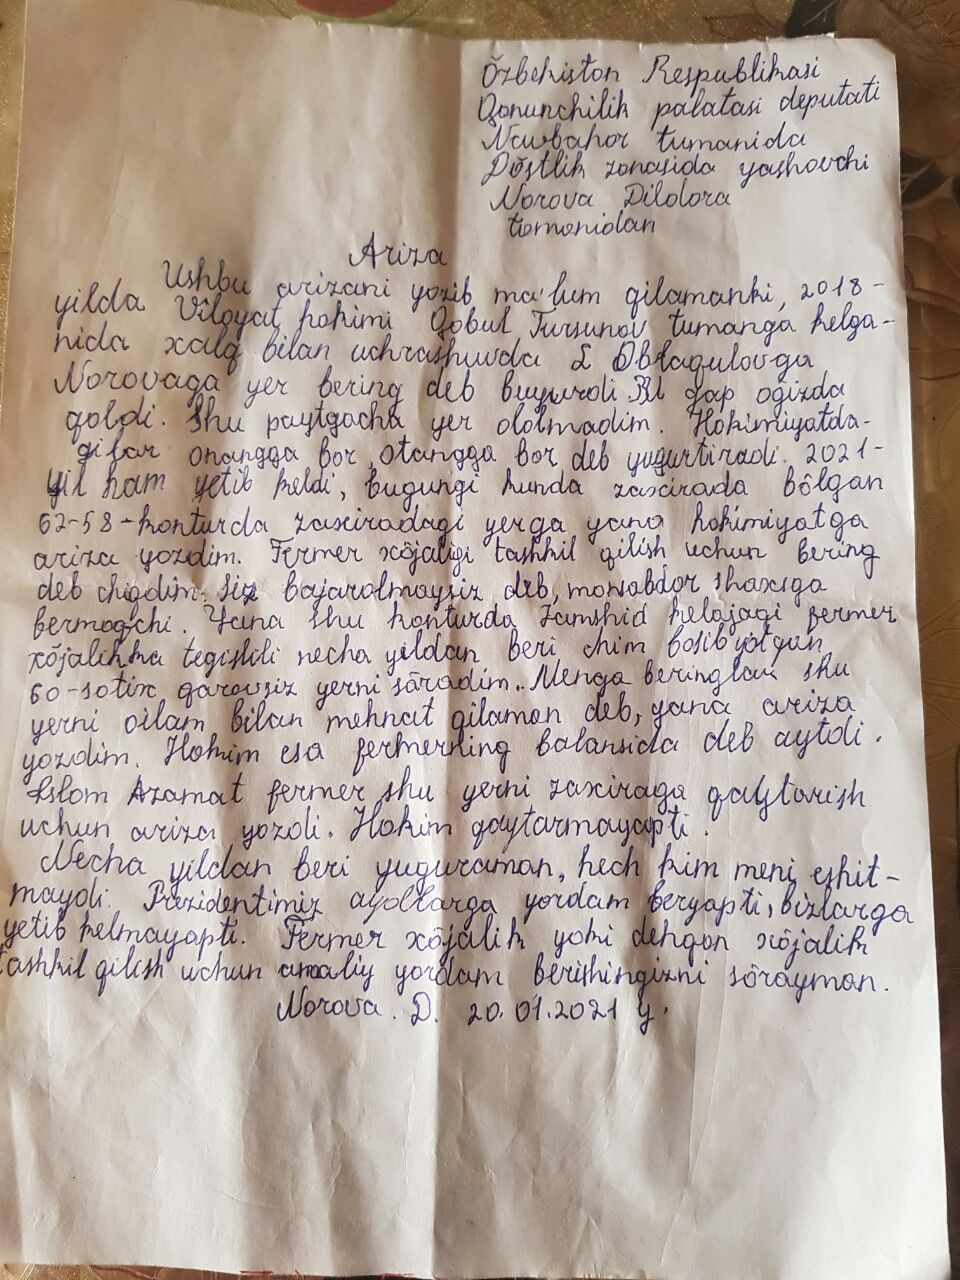 Õzbekiston Respublikasi
Qonunchilik palatasi deputati
Navbahor tumanida
Dõstlik zonasida yashovchi
Norova Dildora
tomonidan
Ariza
Ushbu arizani yozib ma'lum qilamanki, 2018-
yilda Viloyat hokimi Qobul Tursunov tumanga kelga-
nida xalq bilan uchrashuvda
Norovaga yer bering deb buyurdi. Bu gap ogizda
qoldi. Shu paytgacha yer ololmadim. Hokimiyatda-
gilar onangga bor, otangga bor deb yugurtiradi. 2021-
yil ham yetib keldi, bugungi kunda zaxirada bõlgan
62-58-konturda zaxiradagi yerga yana hokimiyatga
ariza yozdim. Fermer xõjaligi tashkil qilish uchun bering
deb chiqdim. Siz bajarolmaysiz deb, mansabdor shaxsga
bermoqchi. Yana shu konturda Jamshid kelajagi fermer
xõjalikka tegishli necha yildan beri chim bosib yotgan
60-sotix qarovsiz yerni sõradim.. Menga beringlar shu
yerni oilam bilan mehnat qilaman deb, yana ariza
yozdim. Hokim esa fermerning balansida deb aytdi.
Islom Azamat fermer shu yerni zaxiraga qaytarish
uchun ariza yozdi. Hokim qaytarmayapti.
Necha yildan beri yuguraman, hech kim meni eshit-
maydi. Prezidentimiz ayollarga yordam beryapti, bizlarga
yetib kelmayapti. Fermer xõjalik yoki dehqon xõjalik
tashkil qilish uchun amaliy yordam berishingizni sõrayman.
Norova. D. 20.01.2021 y.